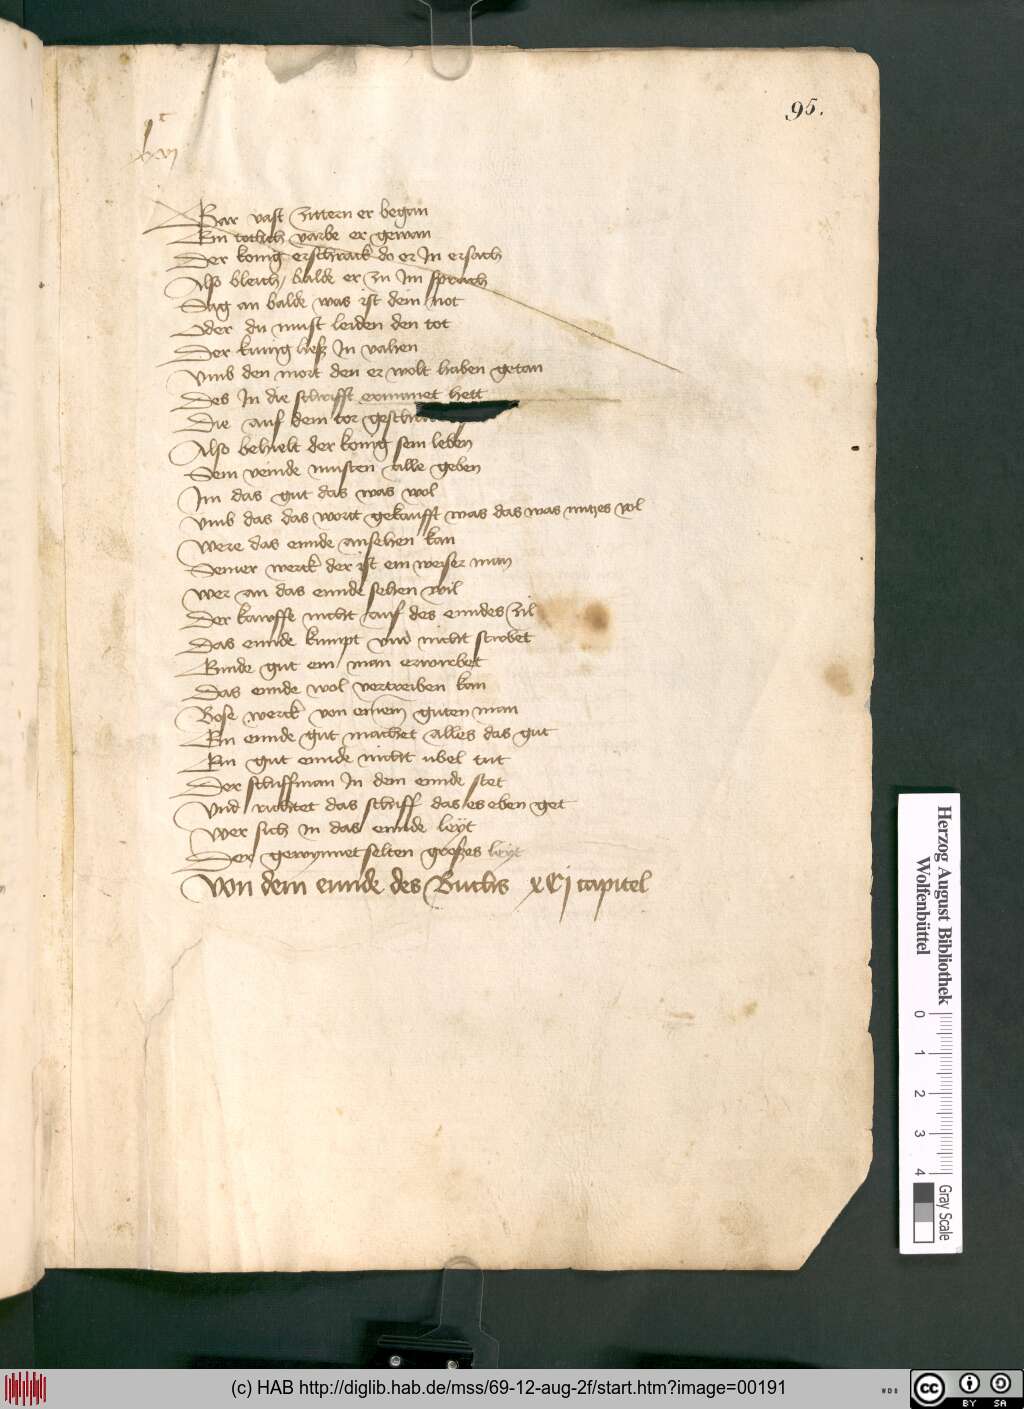 95.
xxvj
Gar vast zittern er began
Ein totlich varbe er gewan
Der konig erschrack do er In ersach
Also bleich balde er zu Im sprach
Sag an balde was ist dein not
Oder du must leiden den tot
Der kunig ließ In vahen
Vmb den mort den er wolt haben getan
Des In die schrifft ermanet hett
Die auf dem tor
Also behielt der konig sein leben
Sein veinde musten alle geben
Im das gut das was wol
Vmb das das wort gekaufft was das was nutzes vol
Were das ennde ansehen kan
Seiner werck der ist ein weiser man
Wer an das ennde sehen wil
Der kawffe nicht auf des enndes zil
Das ennde kumpt vnd nicht stirbet
Ennde gut ein man erwirbet
Das ennde wol vertreiben kan
Bose werck von einem guten man
Ein ennde gut machet alles das gut
Ein gut ennde nicht ubel tut
Der schiffman In dem ennde stet
Vnd richtet das schiff das es eben get
Wer sich in das ennde leÿt
Der gewynnet selten großes leÿt
Von dem ennde des Buchs capitel
Herzog August Bibliothek
Wolfenbüttel
0 1 2 3 4
Gray Scale
(c) HAB http://diglib.hab.de/mss/69-12-aug-2f/start.htm?image=00191
WDB
cc
BY SA